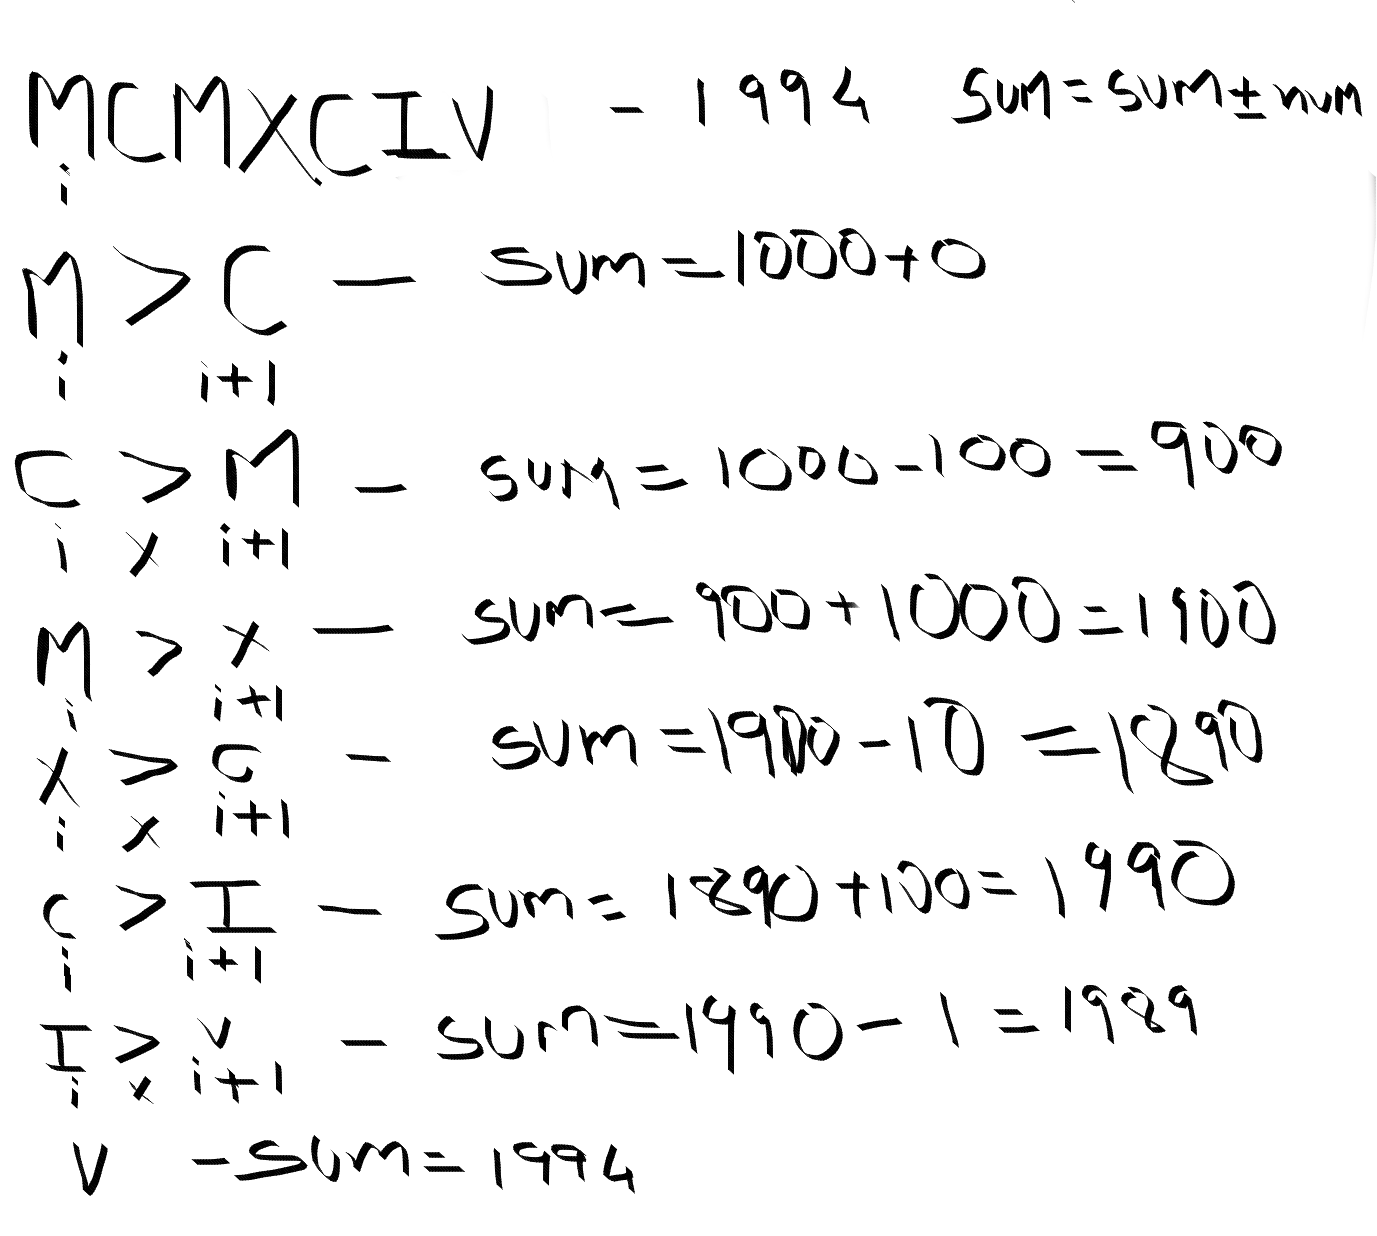 MCMXCIV - 1994 sum=sum±num
i
M > C — sum=1000+0
i i+1
C > M — sum=1000-100=900
i x i+1
M > X — sum=900+1000=1900
i i+1
X > C - sum=1900-10=1890
i x i+1
C > I — sum=1890+100=1990
i i+1
I > V — sum=1990-1=1989
i x i+1
V - sum=1994